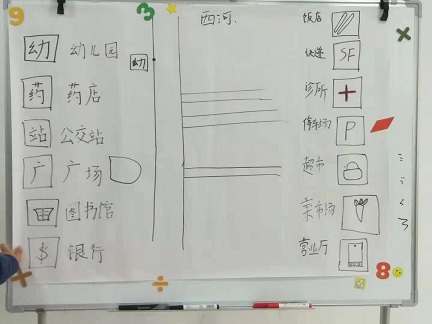 9
3
西河.
饭店
幼 幼儿园
幼
快递 SF
药 药店
诊所
站 公交站
停车场 P
广 广场
超市
图书馆
菜市场
$ 银行
营业厅
8